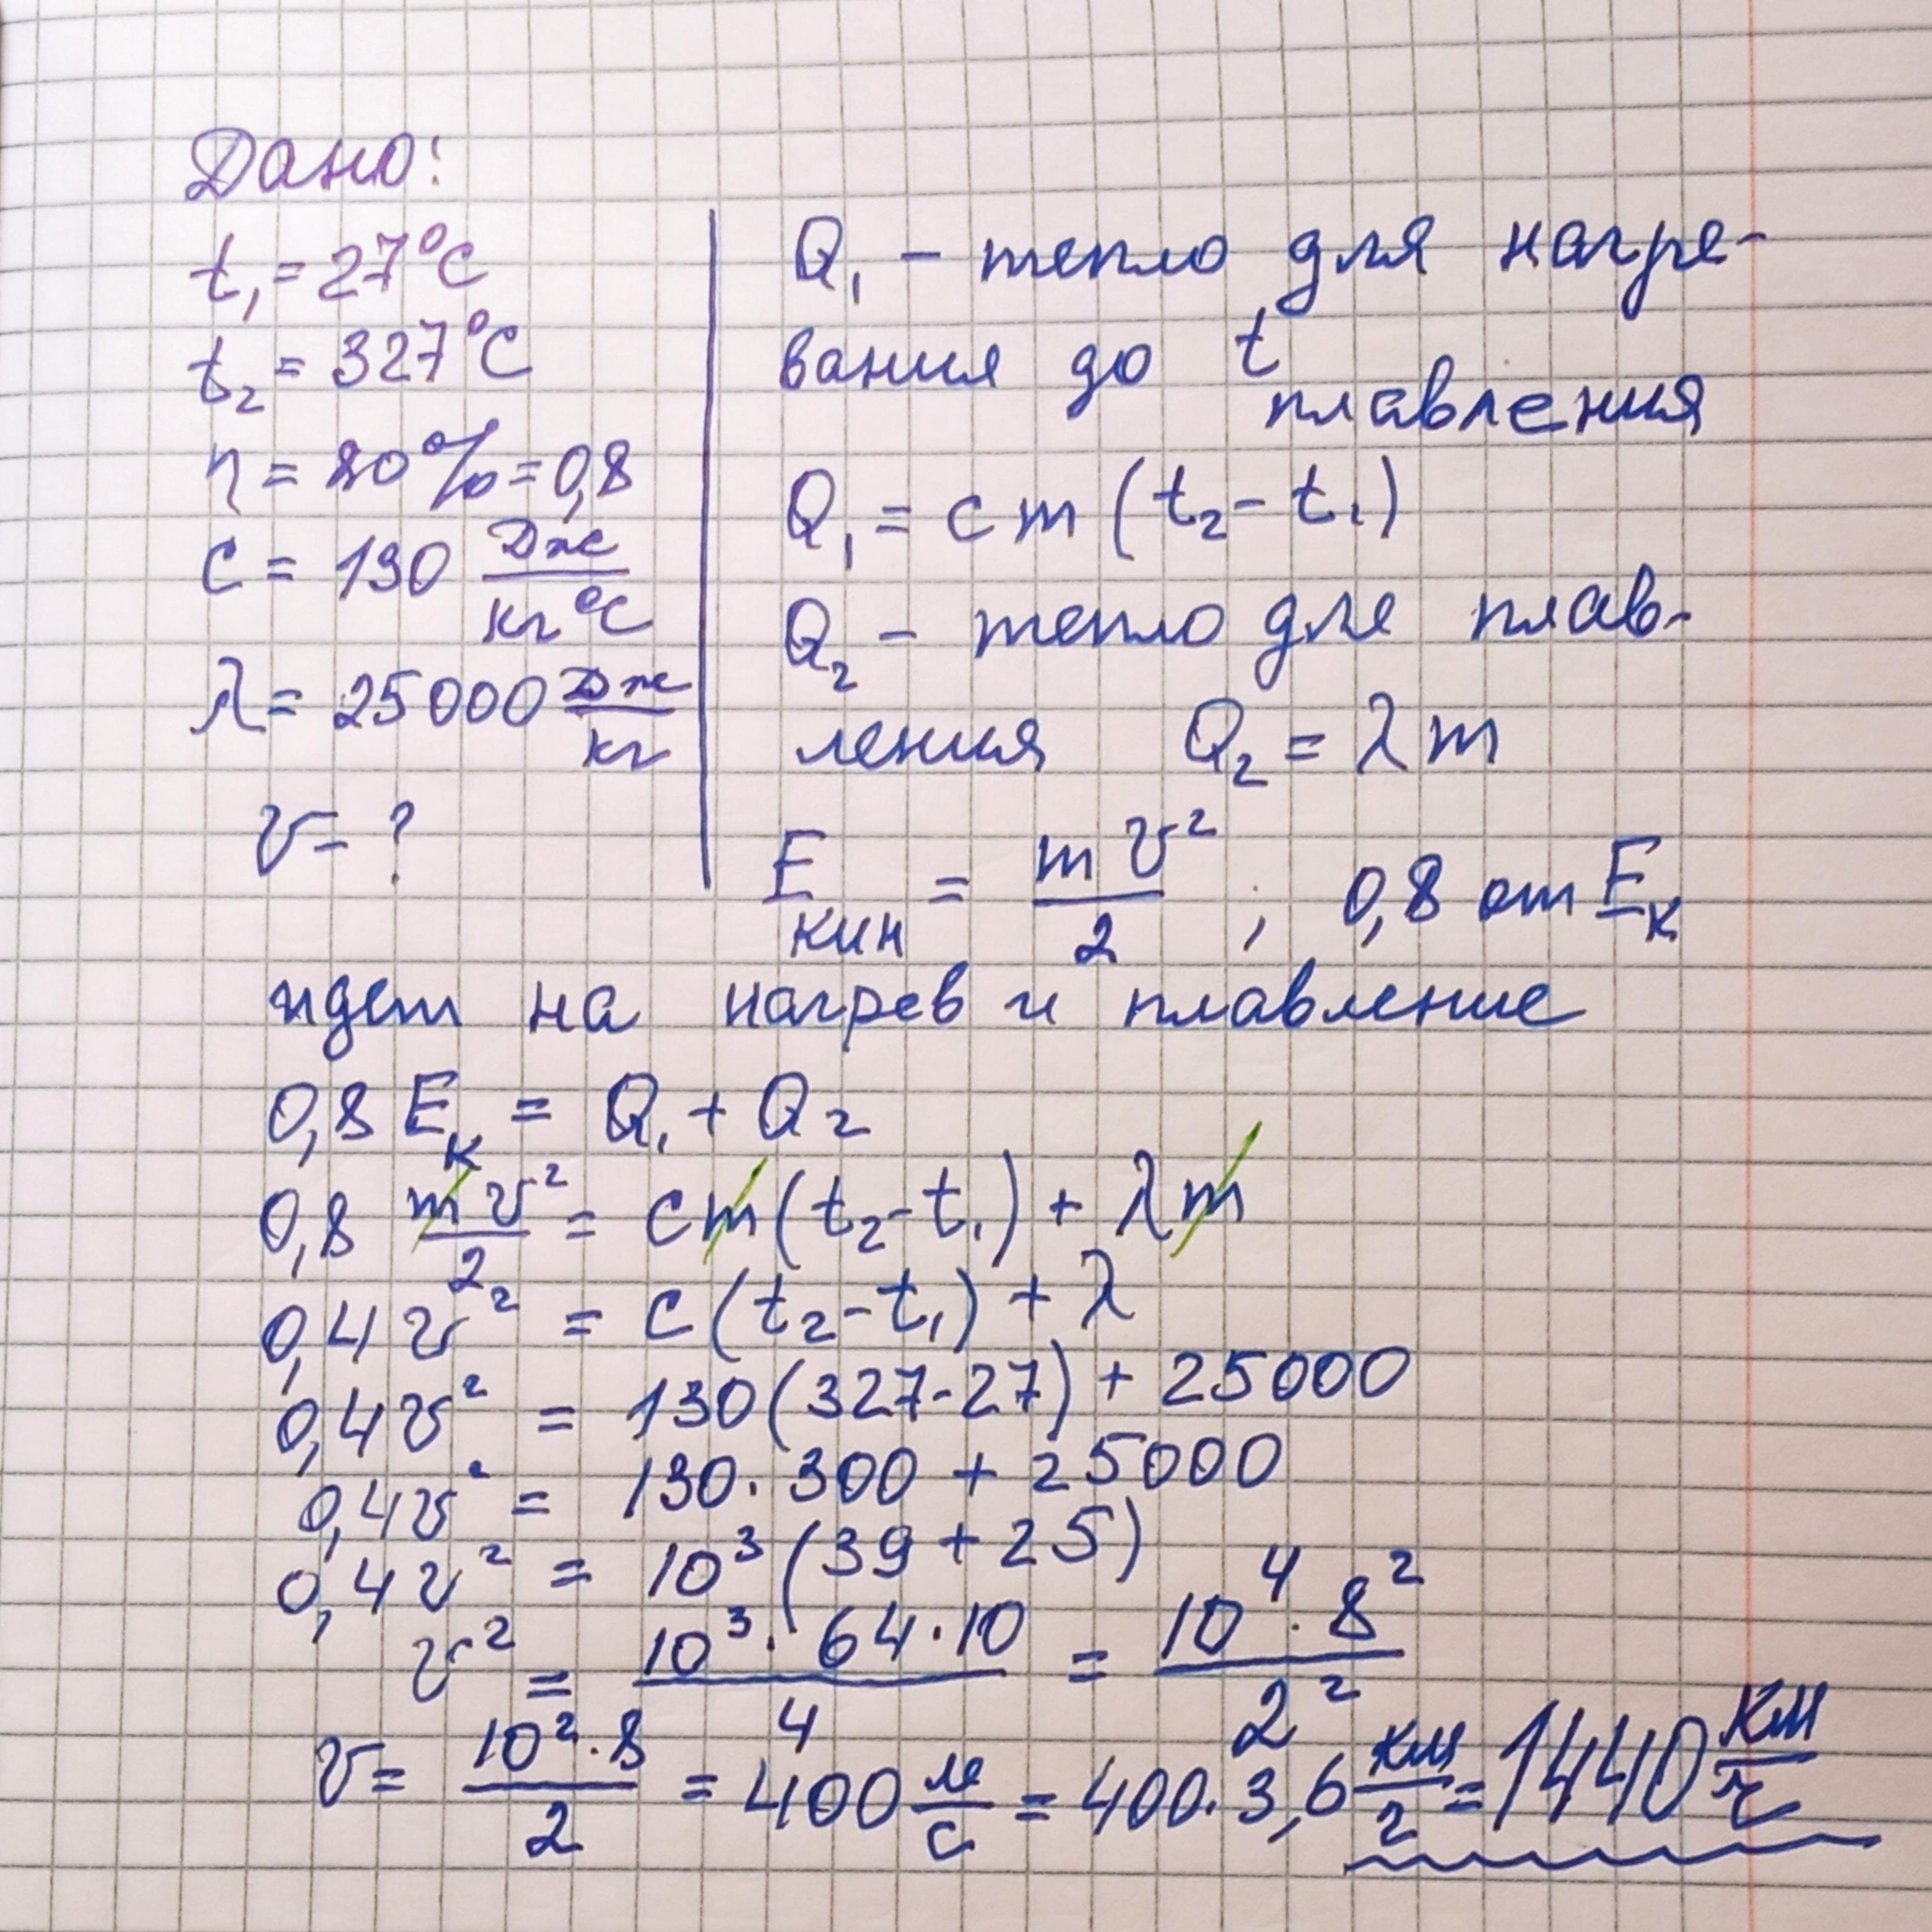 Дано:
t₁ = 27°C
t₂ = 327°C
η = 80% = 0,8
c = 130 Дж/кг°C
λ = 25000 Дж/кг
v = ?
Q₁ – тепло для нагре-
вания до t плавления
Q₁ = cm(t₂ - t₁)
Q₂ – тепло для плав-
ления Q₂ = λm
Eкин = mv²/2 ; 0,8 от Eк
идет на нагрев и плавление
0,8 Eк = Q₁ + Q₂
0,8 mv²/2 = cm(t₂ - t₁) + λm
0,4v² = c(t₂ - t₁) + λ
0,4v² = 130(327 - 27) + 25000
0,4v² = 130 · 300 + 25000
0,4v² = 10³(39 + 25)
v² = 10³ · 64 · 10/4 = 10⁴ · 8²/2²
v = 10² · 8/2 = 400 м/с = 400 · 3,6 км/г = 1440 км/ч